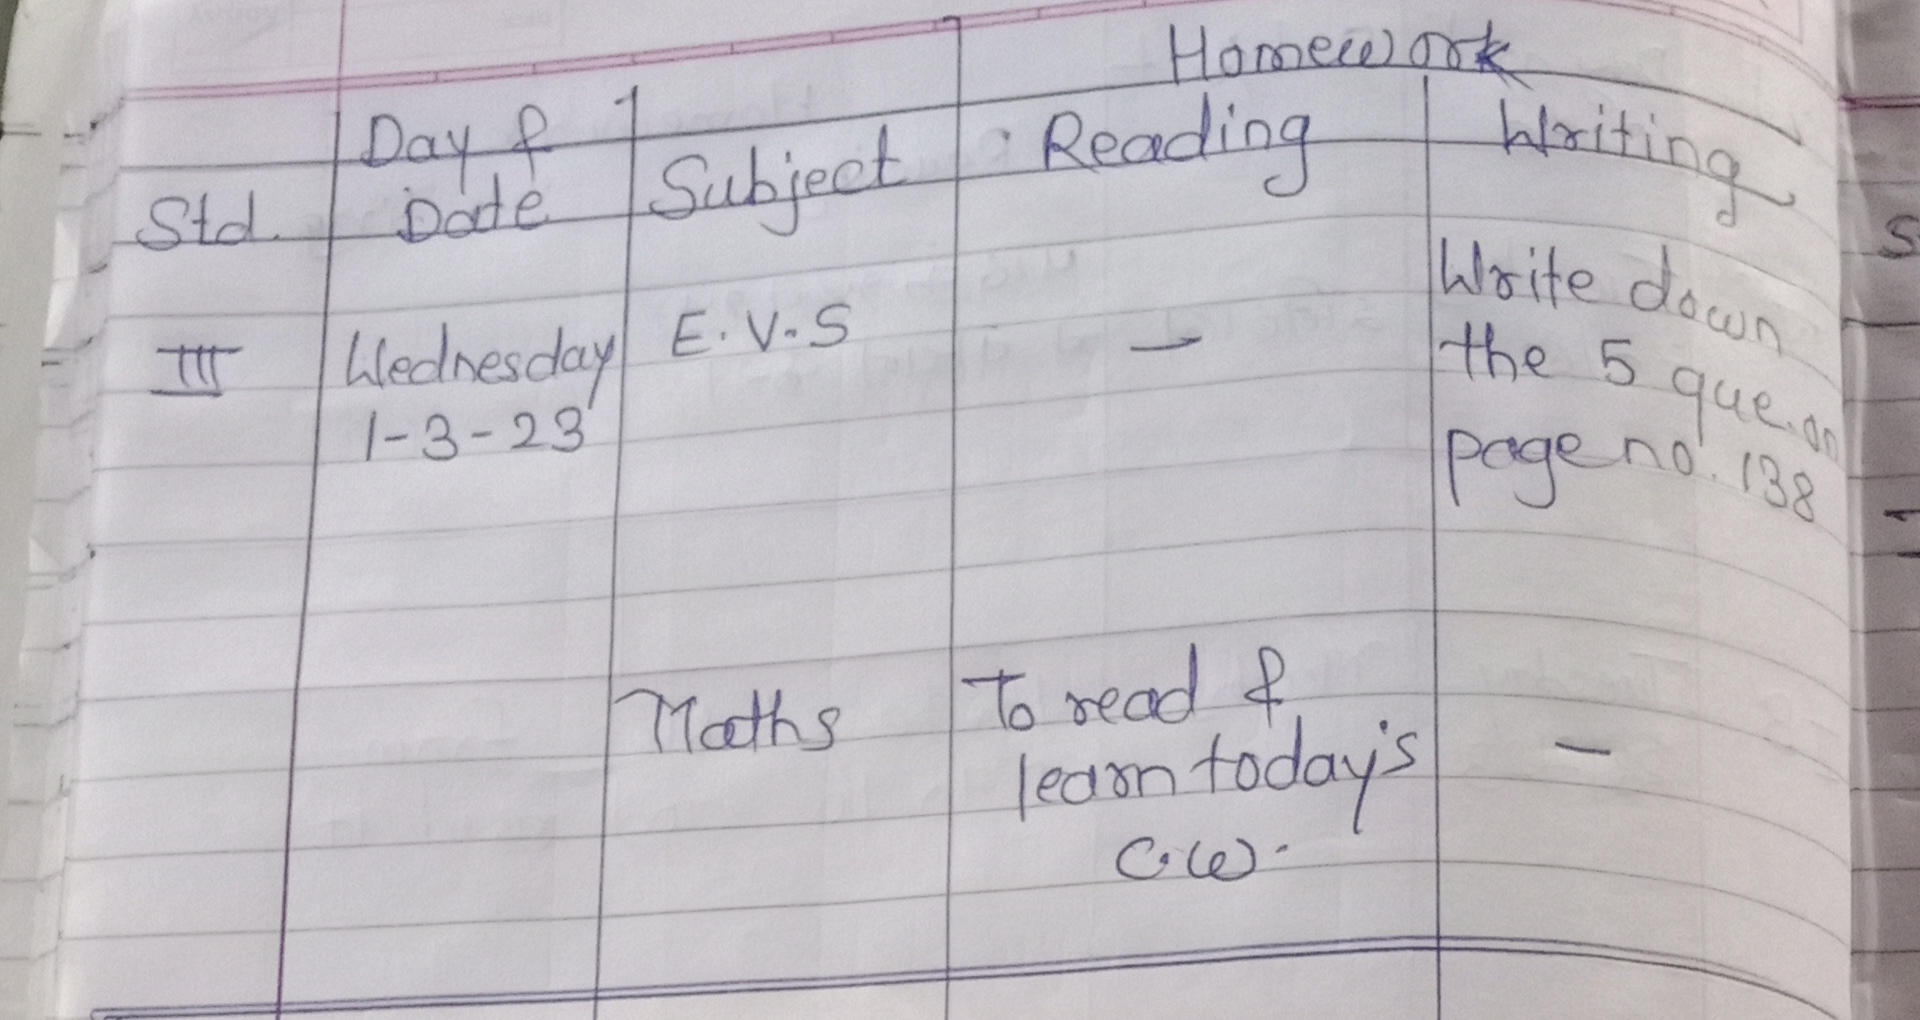 Homework
Std. Day & Date Subject Reading Writing
III Wednesday E.V.S - Write down
1-3-23 the 5 que. on
page no. 138
Maths To read & -
learn today's
C.W.